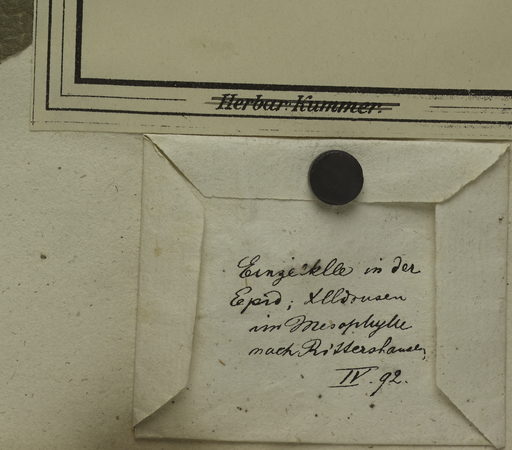 Herbar. Kummer.
Einzelklle in der
Epid; Klldrusen
im Mesophylle
nach Rittershausen
IV. 92.